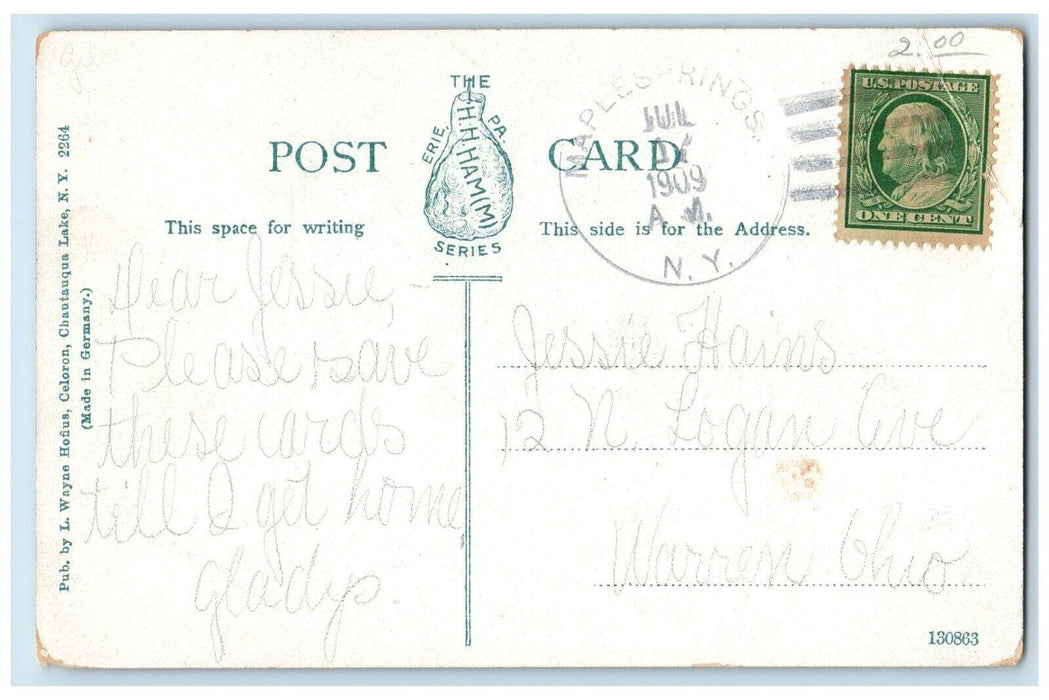 2.00
THE
H.H.HAM(M)
ERIE, PA.
SERIES
POST CARD
MAPLE SPRINGS.
JUL
1909
A.M.
N.Y.
U.S. POSTAGE
ONE CENT
This space for writing
This side is for the Address.
Pub. by L. Wayne Hofius, Celoron, Chautauqua Lake, N. Y. 2264
(Made in Germany.)
Dear Jessie, -
Please save
these cards
till I get home,
Gladys.
Jessie Hains
12 N. Logan Ave
Warren Ohio
130863